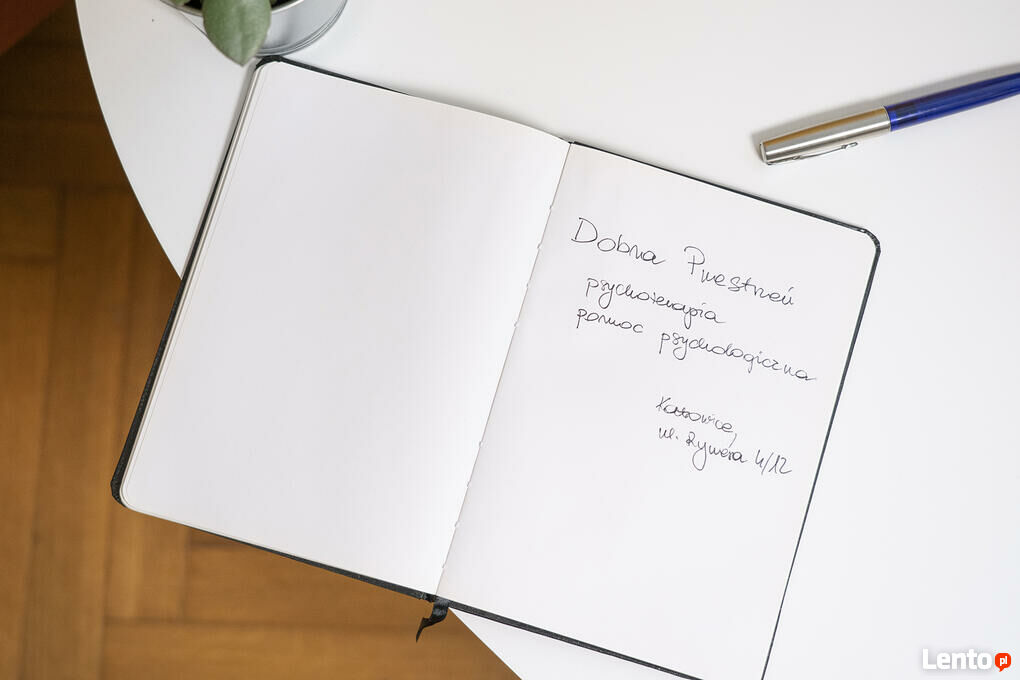 Dobra Przestrzeń
psychoterapia
pomoc psychologiczna
Katowice,
ul. Rymera 4/12
Lento pl